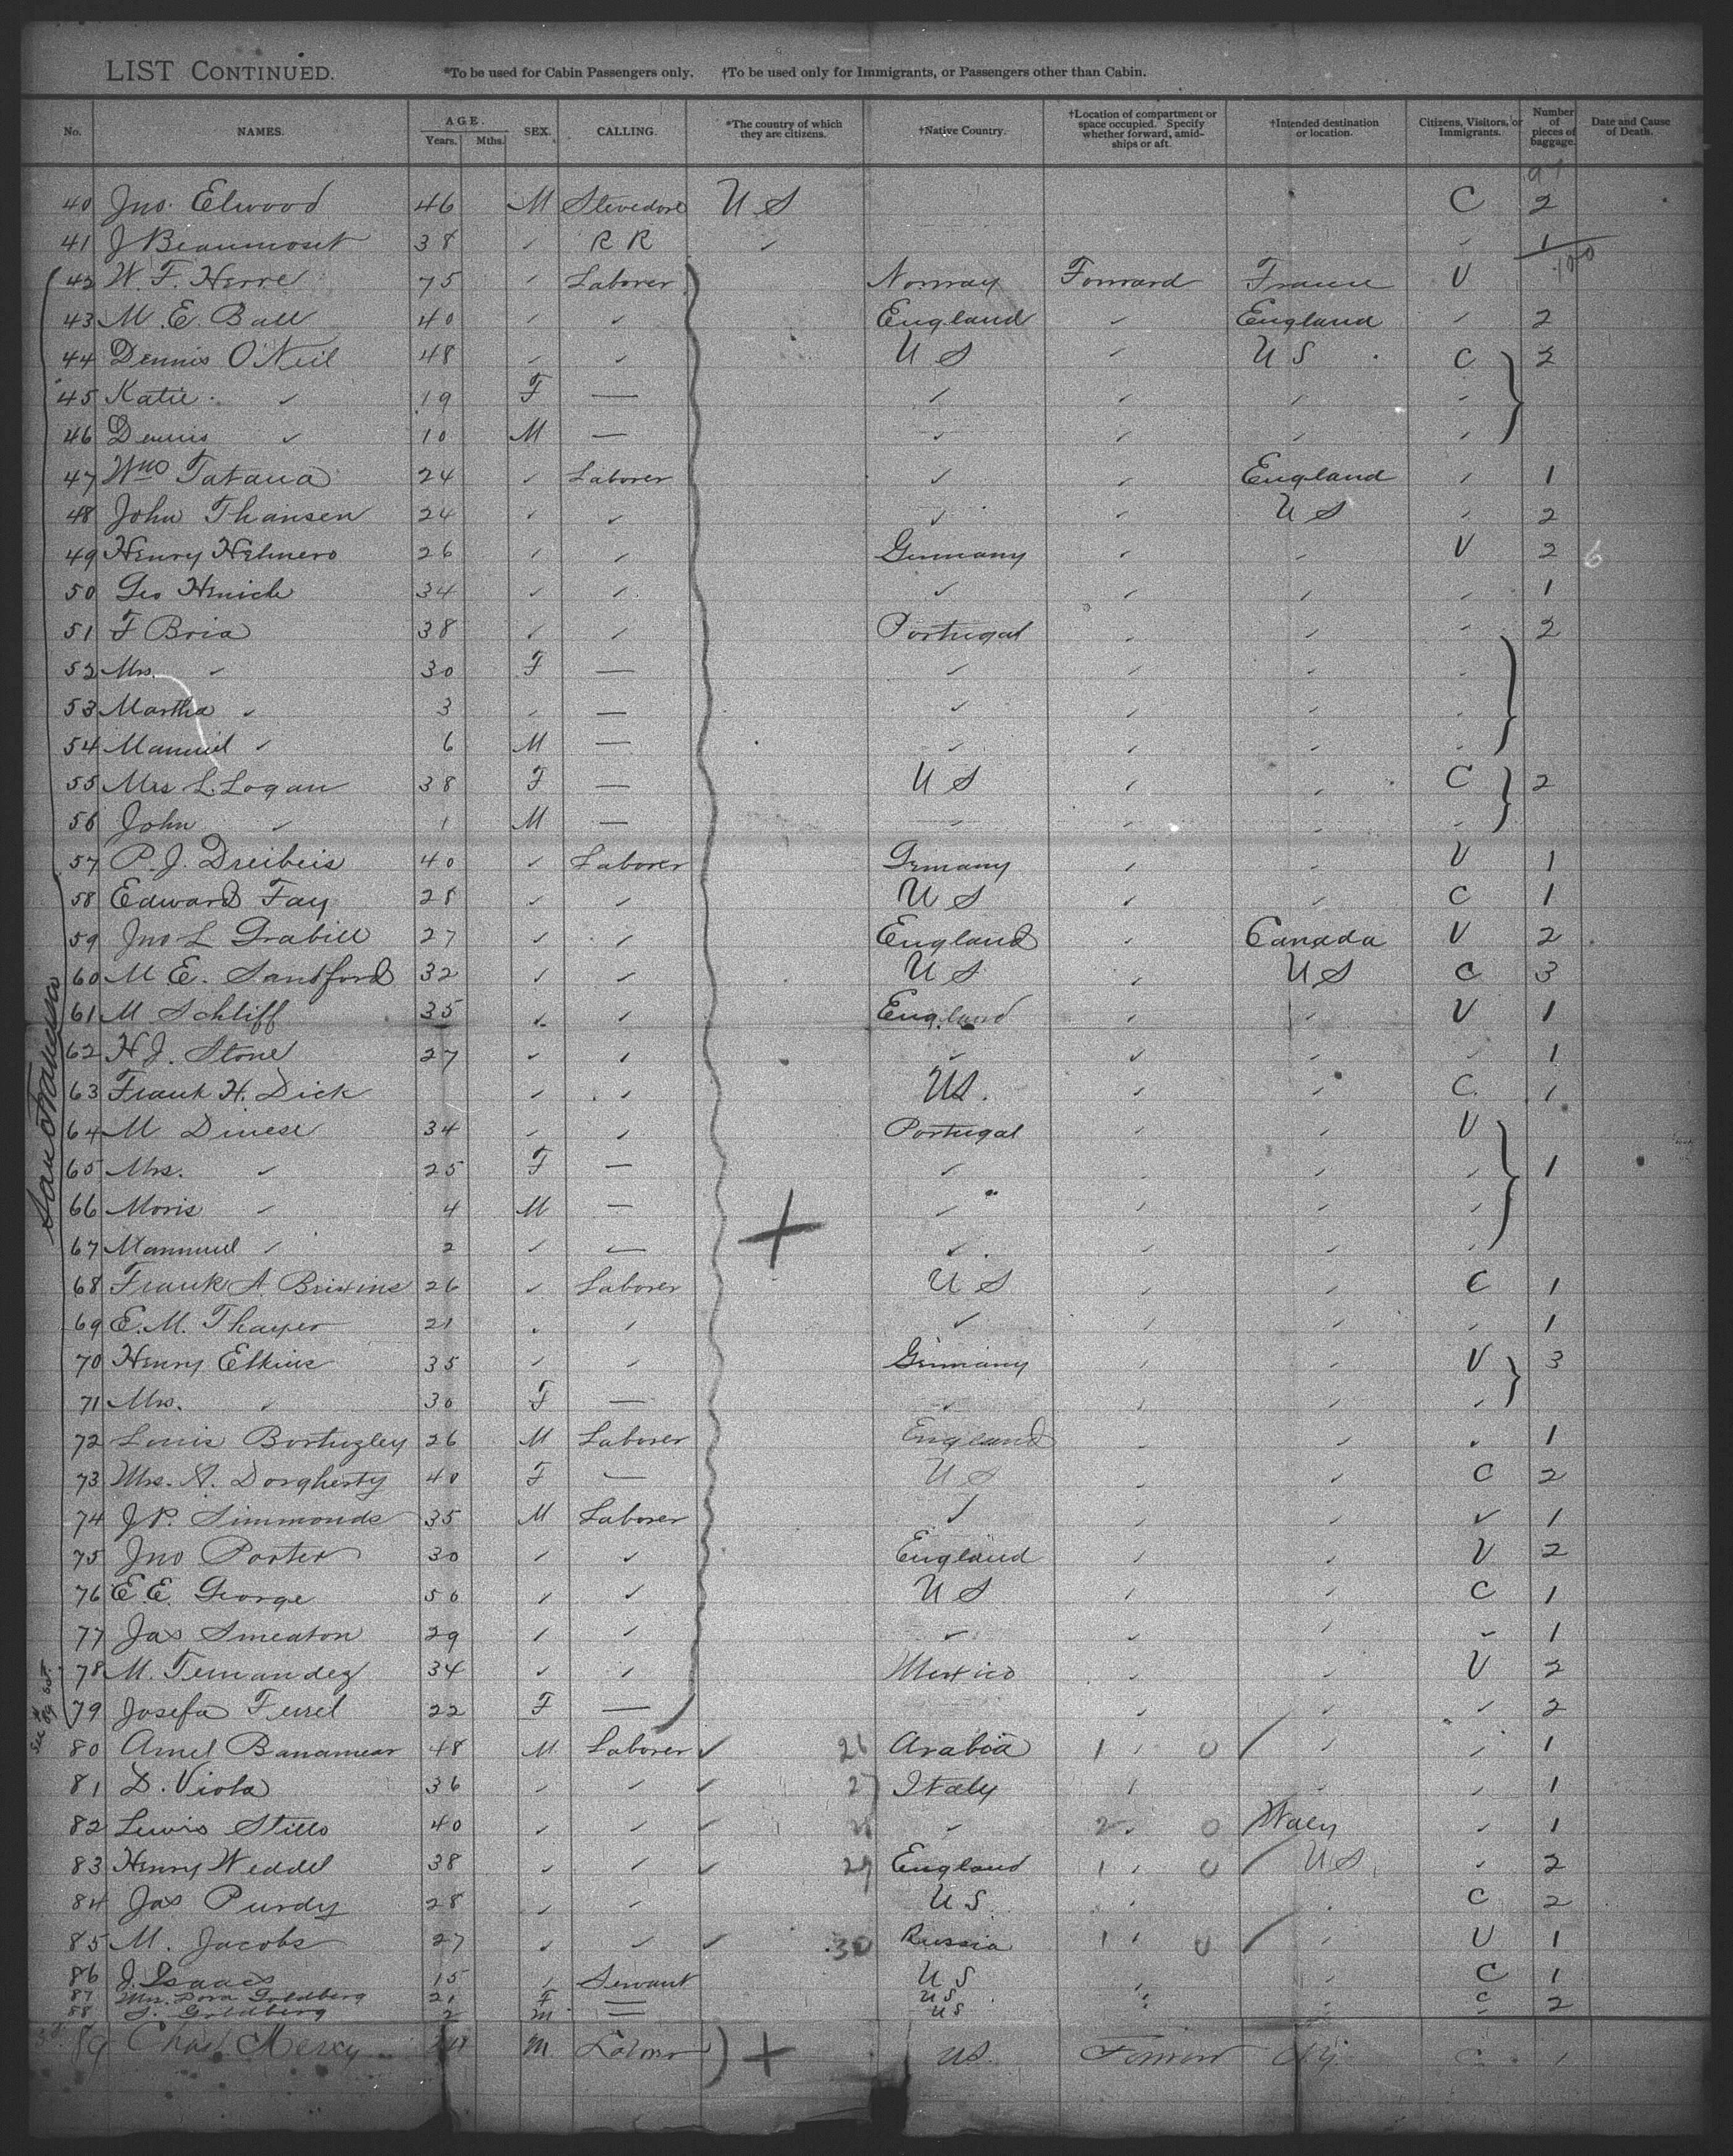 LIST CONTINUED. *To be used for Cabin Passengers only. †To be used only for Immigrants, or Passengers other than Cabin.
No. NAMES. AGE. Years. Mths. SEX. CALLING. *The country of which they are citizens. †Native Country. †Location of compartment or space occupied. Specify whether forward, amidships or aft. †Intended destination or location. Citizens, Visitors, or Immigrants. Number of pieces of baggage. Date and Cause of Death.
40 Jno. Elwood 46 M Stevedore U S C 2
41 J Beaumont 38 ✓ R R ✓ ✓ 1
42 W. F. Herre 75 ✓ Laborer Norway Forward France V
43 M. E. Ball 40 ✓ ✓ England ✓ England ✓ 2
44 Dennis O'Neil 48 ✓ ✓ U S ✓ U S C 2
45 Katie ✓ 19 F — ✓ ✓ ✓ ✓
46 Dennis ✓ 10 M — ✓ ✓ ✓ ✓
47 Wm Tatana 24 ✓ Laborer ✓ ✓ England ✓ 1
48 John Thansen 24 ✓ ✓ ✓ ✓ U S ✓ 2
49 Henry Helmero 26 ✓ ✓ Germany ✓ ✓ V 2 6
50 Geo Henich 34 ✓ ✓ ✓ ✓ ✓ ✓ 1
51 F Bria 38 ✓ ✓ Portugal ✓ ✓ ✓ 2
52 Mrs. ✓ 30 F — ✓ ✓ ✓ ✓
53 Martha ✓ 3 ✓ — ✓ ✓ ✓ ✓
54 Manuel ✓ 6 M — ✓ ✓ ✓ ✓
55 Mrs L. Logan 38 F — U S ✓ ✓ C 2
56 John ✓ 1 M — ✓ ✓ ✓ ✓
57 P. J. Dreibeis 40 ✓ Laborer Germany ✓ ✓ V 1
58 Edward Fay 28 ✓ ✓ U S ✓ ✓ C 1
59 Jno L Grabill 27 ✓ ✓ England ✓ Canada V 2
60 M E. Sandford 32 ✓ ✓ U S ✓ U S C 3
61 M Schliff 35 ✓ ✓ England ✓ ✓ V 1
62 H J. Stone 27 ✓ ✓ ✓ ✓ ✓ ✓ 1
63 Frank H. Dick ✓ ✓ US. ✓ ✓ C 1
64 M Dinese 34 ✓ ✓ Portugal ✓ ✓ V
65 Mrs. ✓ 25 F — ✓ ✓ ✓ ✓ 1
66 Moris ✓ 4 M — ✓ ✓ ✓ ✓
67 Manmuel ✓ 2 ✓ — ✓ ✓ ✓ ✓
68 Frank A. Brixins 26 ✓ Laborer U S ✓ ✓ C 1
69 E. M. Thayer 21 ✓ ✓ ✓ ✓ ✓ ✓ 1
70 Henry Elkins 35 ✓ ✓ Germany ✓ ✓ V 3
71 Mrs. ✓ 30 F — ✓ ✓ ✓ ✓
72 Louis Bortugley 26 M Laborer England ✓ ✓ ✓ 1
73 Mrs. A. Dorgherty 40 F — U S ✓ ✓ C 2
74 J P. Simmonds 35 M Laborer ✓ ✓ ✓ ✓ 1
75 Jno Porter 30 ✓ ✓ England ✓ ✓ V 2
76 E. E. George 50 ✓ ✓ U S ✓ ✓ C 1
77 Jas Smeaton 29 ✓ ✓ ✓ ✓ ✓ ✓ 1
78 M. Fernandez 34 ✓ ✓ Mexico ✓ ✓ V 2
79 Josefa 22 F — ✓ ✓ ✓ 2
80 Amel 48 M Laborer ✓ 26 Arabia 1 ✓ 0 ✓ ✓ 1
81 D. Viola 36 ✓ ✓ ✓ 27 Italy 1 ✓ ✓ 1
82 Lewis Stills 40 ✓ ✓ ✓ ✓ 2 ✓ 0 Italy ✓ 1
83 Henry Weddel 38 ✓ ✓ ✓ 29 England 1 ✓ 0 U S. ✓ 2
84 Jas Purdy 28 ✓ ✓ U S. ✓ ✓ C 2
85 M. Jacobs 27 ✓ ✓ ✓ 30 Russia 1 ✓ 0 ✓ V 1
86 J. Isaacs 15 ✓ Servant U S ✓ ✓ C 1
87 Mrs. Dora Goldberg 21 F — U S ✓ ✓ C 2
88 S. Goldberg 2 M — U S ✓ ✓ ✓
89 Chas. Mercy M. US. Forward N.Y. C. 1
San Francisco